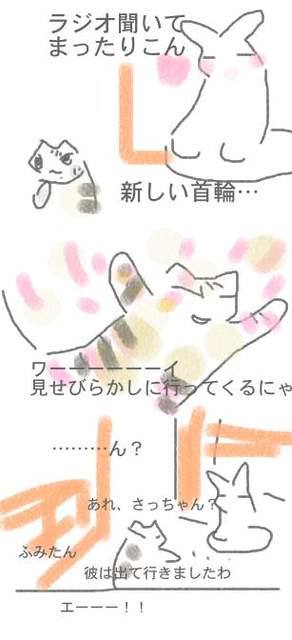 ラジオ聞いて
まったりこん
新しい首輪…
ワーーーーーーイ
見せびらかしに行ってくるにゃ
………ん？
あれ、さっちゃん？
ふみたん
彼は出て行きましたわ
エーーー！！